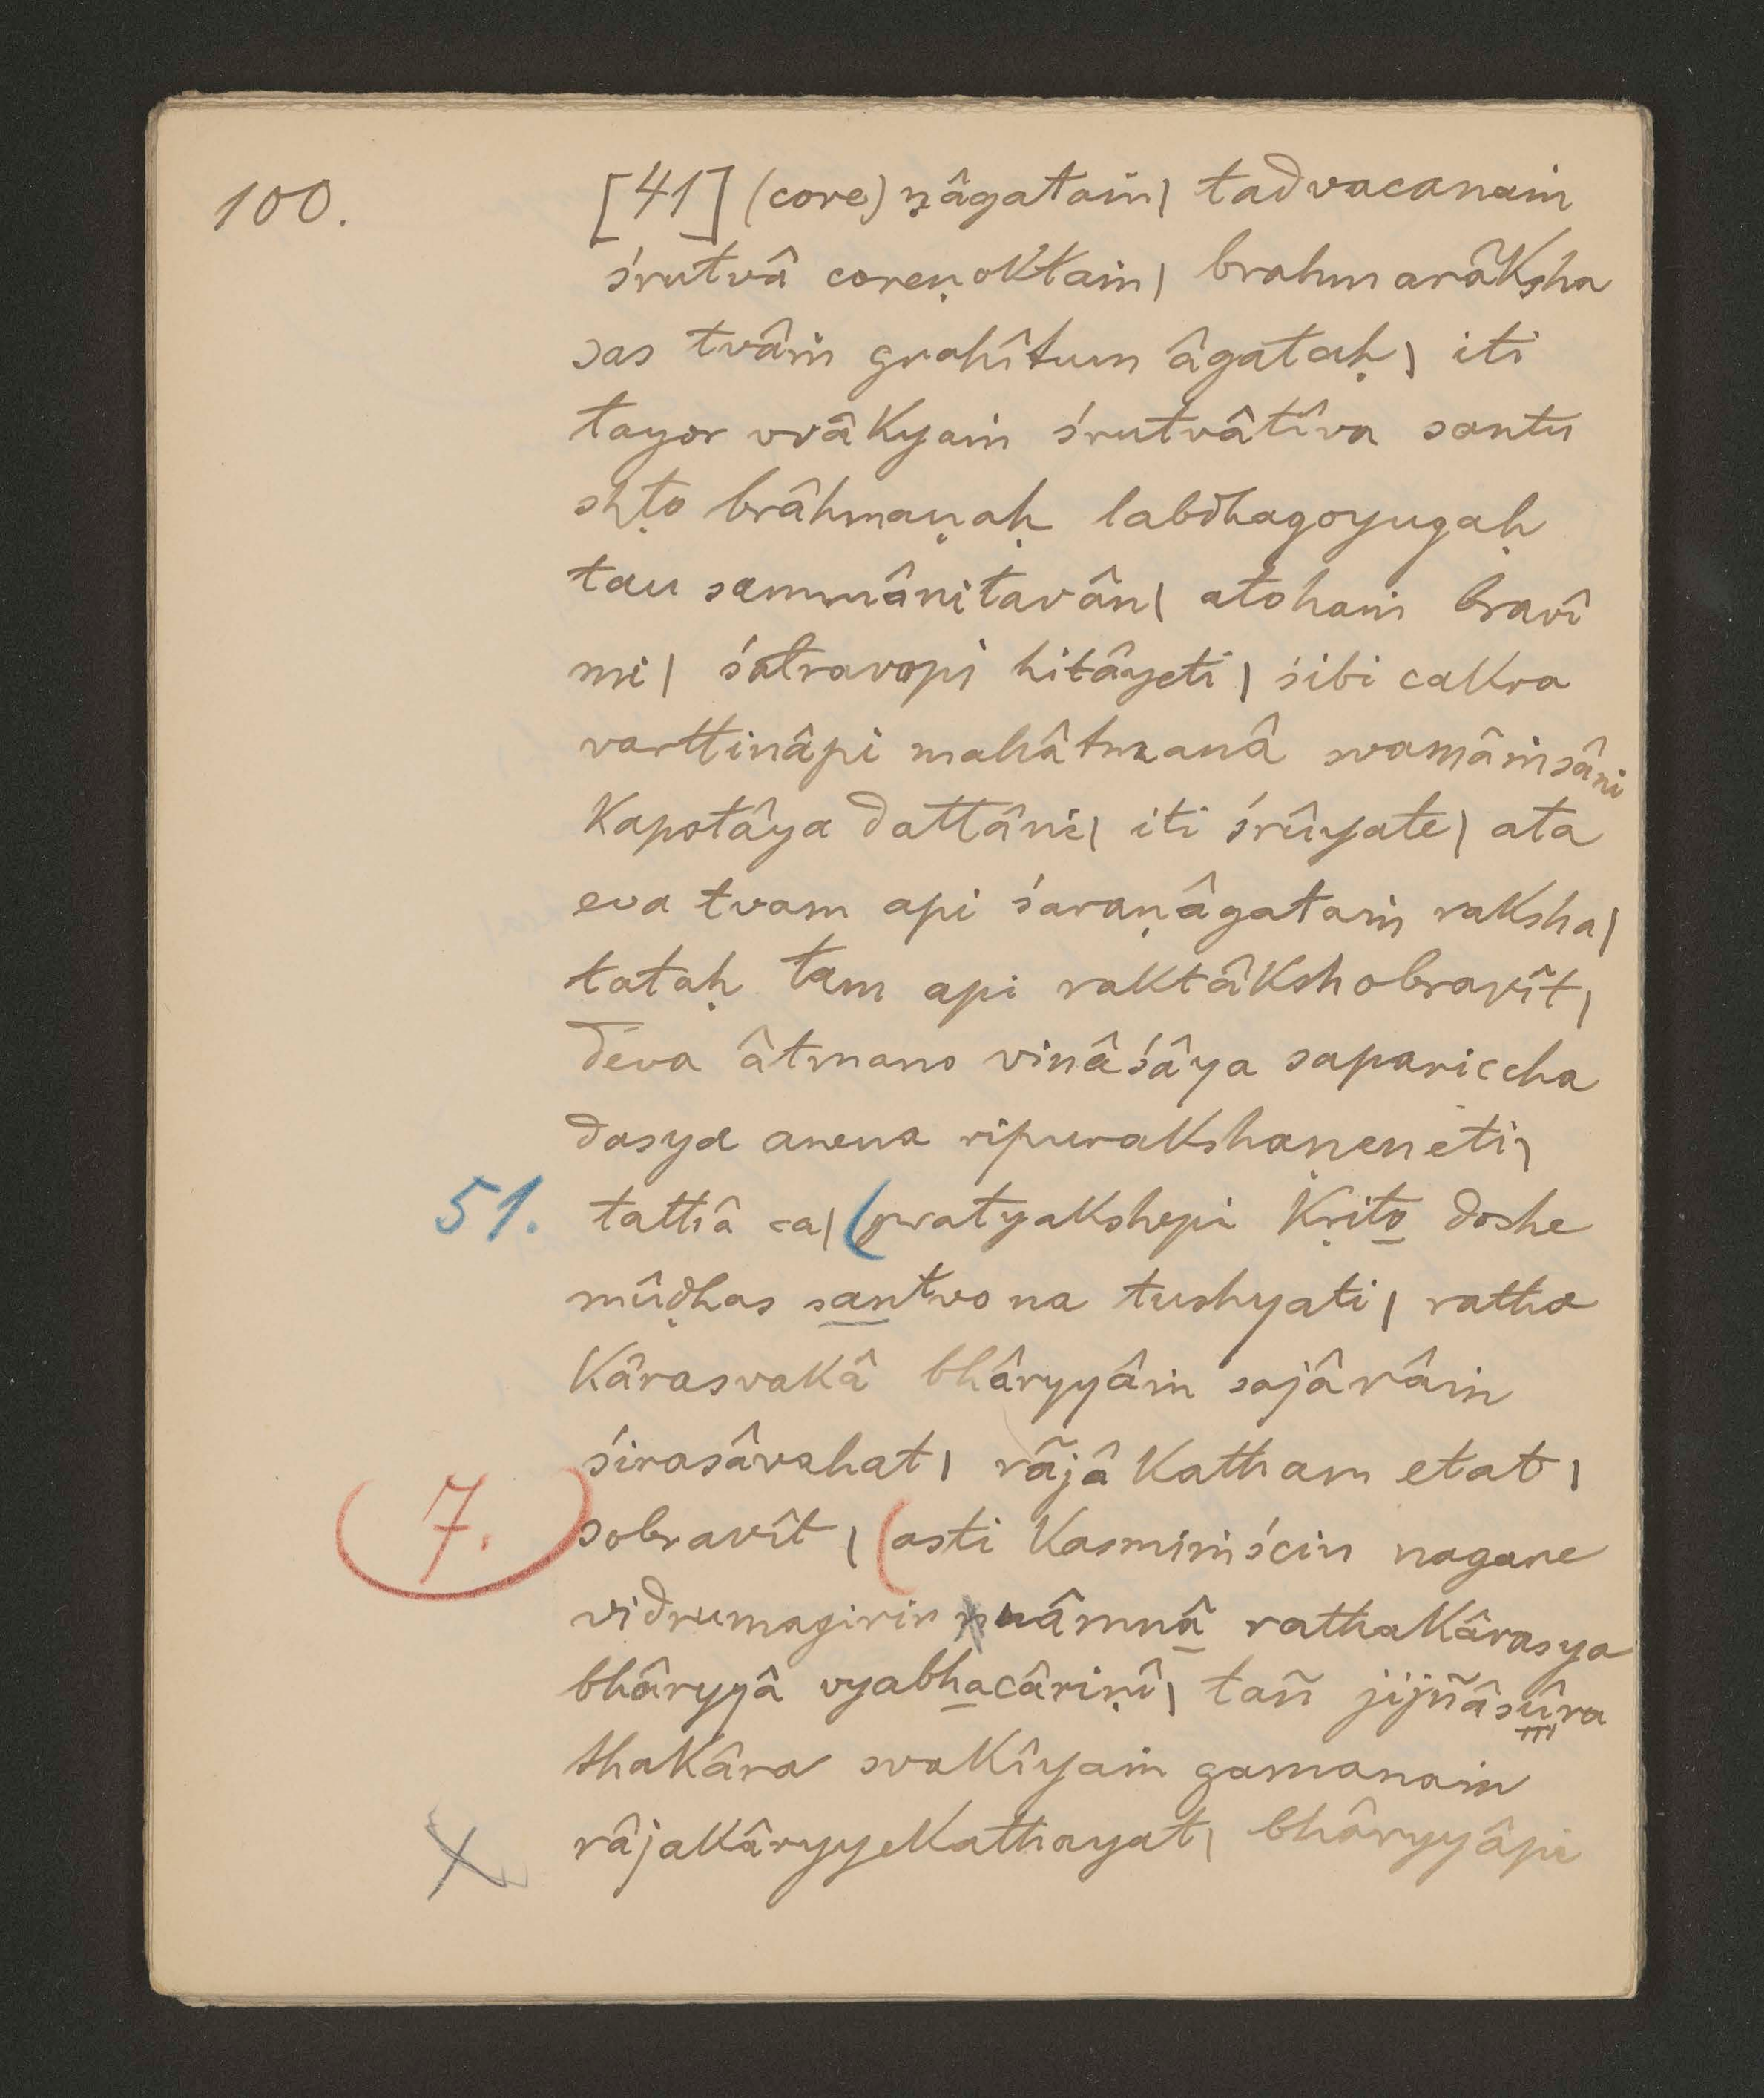 100. [41] (core) ṇâgataṁ| tadvacanaṁ
śrutvâ coreṇoktaṁ| brahmarâksha
sas tvâṁ grahîtum âgataḥ| iti
tayor vvâkyaṁ śrutvâtîva santu
shṭo brâhmaṇaḥ labdhagoyugaḥ
tau sammânitavân| atohaṁ bravî
mi| śatravopi hitâyeti| śibi cakra
varttinâpi mahâtmanâ svamâṁsâni
kapotâya dattâni| iti śrûyate| ata
eva tvam api śaraṇâgataṁ raksha|
tataḥ tam api raktâkshobravît|
deva âtmano vinâśâya sapariccha
dasya anena ripurakshaṇeneti|
51. tathâ ca| (pratyakshepi kṛito doshe
mûḍhas santvo na tushyati| ratha
kârasvakâ bhâryyâṁ sajârâṁ
śirasâvahat| râjâ katham etat|
7. sobravît| (asti kasmiṁścin nagare
vidrumagirin nâmnâ rathakârasya
bhâryyâ vyabhacâriṇî| tañ jijñâsûra
thakâra svakîyaṁ gamanaṁ
X râjakâryyekathayat| bhâryyâpi